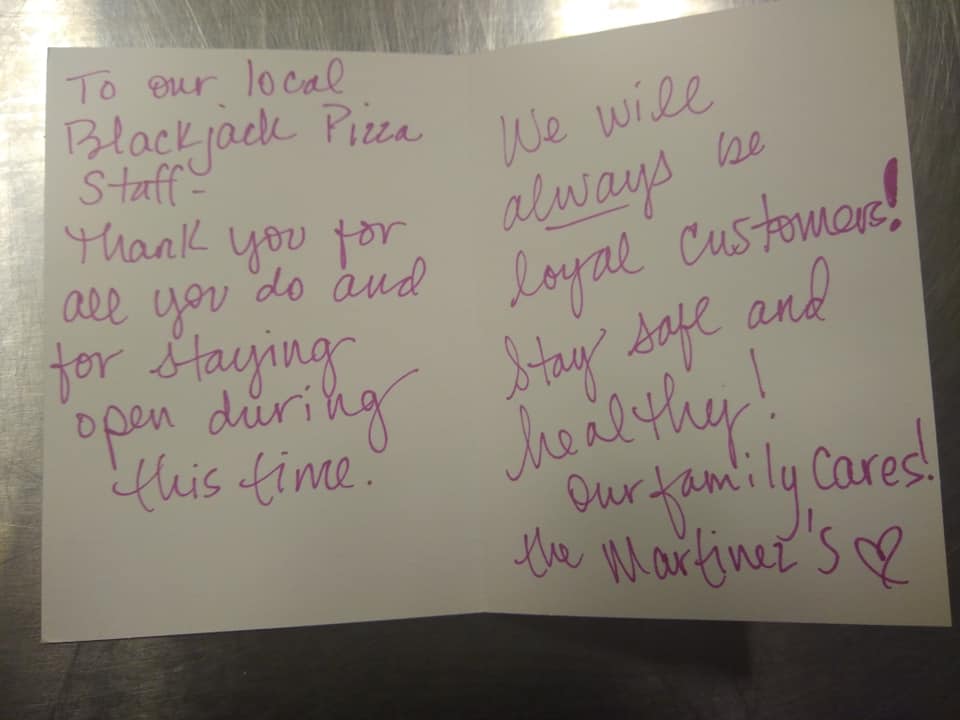 To our local
Blackjack Pizza
Staff-
Thank you for
all you do and
for staying
open during
this time.
We will
always be
loyal customers!
Stay safe and
healthy!
Our family cares!
the Martinez's ♡